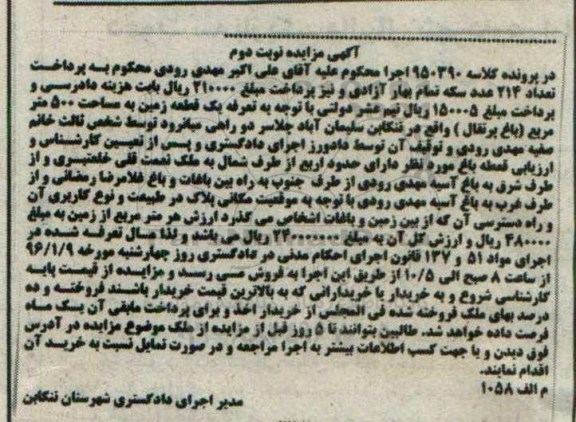 آگهی مزایده نوبت دوم
در پرونده کلاسه ۹۵۰۳۹۰ اجرا محکوم علیه آقای علی اکبر مهدی رودی محکوم به پرداخت
تعداد ۲۱۴ عدد سکه تمام بهار آزادی و نیز پرداخت مبلغ ۲۱۰۰۰۰ ریال بابت هزینه دادرسی و
پرداخت مبلغ ۱۵۰۰۰۵ ریال نیم عشر دولتی با توجه به تعرفه یک قطعه زمین به مساحت ۵۰۰ متر
مربع (باغ پرتقال) واقع در تنکابن سلیمان آباد چلاسر دو راهی میانرود توسط شخص ثالث خانم
صفیه مهدی رودی و توقیف آن توسط دادورز اجرای دادگستری و پس از تعیین کارشناس و
ارزیابی قطعه باغ مورد نظر دارای حدود اربع از طرف شمال به ملک نعمت قلی خلعتبری و از
طرف شرق به باغ آسیه مهدی رودی از طرف جنوب به راه بین باغات و باغ غلامرضا رمضانی و از
طرف غرب به باغ آسیه مهدی رودی با توجه به موقعیت مکانی پلاک در طبیعت و نوع کاربری آن
و راه دسترسی آن که از بین زمین و باغات اشخاص می گذرد ارزش هر متر مربع از زمین به مبلغ
۴۸۰۰۰۰ ریال و ارزش کل آن به مبلغ ۲۴۰۰۰۰۰۰۰ ریال می باشد و لذا مال تعرفه شده در
اجرای مواد ۵۱ و ۱۳۷ قانون اجرای احکام مدنی در دادگستری روز چهارشنبه مورخه ۹۶/۱/۹
از ساعت ۸ صبح الی ۱۰/۵ از طریق این اجرا به فروش می رسد و مزایده از قیمت پایه
کارشناسی شروع و به خریدار یا خریدارانی که به بالاترین قیمت خریدار باشند فروخته و ده
درصد بهای ملک فروخته شده فی المجلس از خریدار اخذ و برای پرداخت مابقی آن یک ماه
فرصت داده خواهد شد. طالبین بتوانند تا ۵ روز قبل از مزایده از ملک موضوع مزایده در آدرس
فوق دیدن و یا جهت کسب اطلاعات بیشتر به اجرا مراجعه و در صورت تمایل نسبت به خرید آن
اقدام نمایند.
م الف ۱۰۵۸
مدیر اجرای دادگستری شهرستان تنکابن